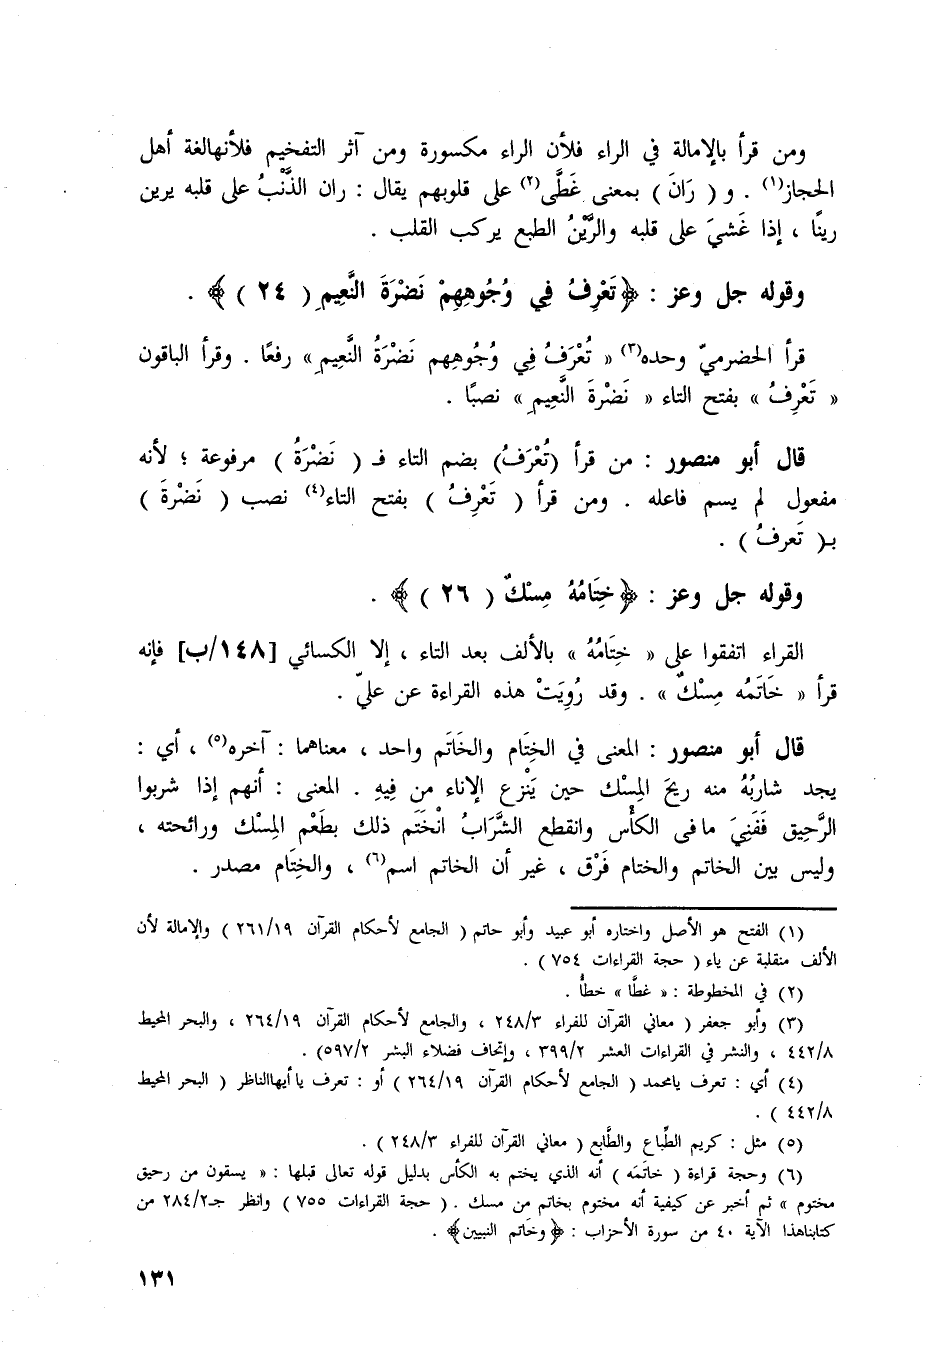 ومن قرأ بالإمالة في الراء فلأن الراء مكسورة ومن آثر التفخيم فلأنهالغة أهل
الحجاز(١) . و ( رَانَ ) بمعنى غَطَّى(٢) على قلوبهم يقال : ران الذَّنْبُ على قلبه يرين
رينًا ، إذا غَشيَ على قلبه والرَّيْنُ الطبع يركب القلب .
وقوله جل وعز : ﴿تَعْرِفُ فِي وُجُوهِهِمْ نَضْرَةَ النَّعِيمِ ( ٢٤ )﴾ .
قرأ الحضرميّ وحده(٣) « تُعْرَفُ فِي وُجُوهِهم نَضْرَةُ النَّعِيمِ» رفعًا . وقرأ الباقون
« تَعْرِفُ » بفتح التاء « نَضْرةَ النَّعِيمِ » نصبًا .
قال أبو منصور : من قرأ (تُعْرَفُ) بضم التاء فـ ( نَضْرَةُ ) مرفوعة ؛ لأنه
مفعول لم يسم فاعله . ومن قرأ ( تَعْرِفُ ) بفتح التاء(٤) نصب ( نَضْرةَ )
بـ( تَعرفُ ) .
وقوله جل وعز : ﴿خِتَامُهُ مِسْكٌ ( ٢٦ )﴾ .
القراء اتفقوا على « خِتَامُهُ » بالألف بعد التاء ، إلا الكسائي [١٤٨/ب] فإنه
قرأ « خَاتَمُه مِسْكٌ » . وقد رُوِيَتْ هذه القراءة عن عليّ .
قال أبو منصور : المعنى في الخِتَام والخَاتَم واحد ، معناهما : آخره(٥) ، أي :
يجد شاربُهُ منه ريحَ المِسْك حين يَنْزع الإناء من فِيهِ . المعنى : أنهم إذا شربوا
الرَّحِيق فَفَنِيَ مافى الكأْس وانقطع الشَّرَابُ انْختَم ذلك بطَعْم المِسْك ورائحته ،
وليس بين الخاتم والختام فَرْق ، غير أن الخاتم اسم(٦) ، والخِتَام مصدر .
(١) الفتح هو الأصل واختاره أبو عبيد وأبو حاتم ( الجامع لأحكام القرآن ٢٦١/١٩ ) والإمالة لأن
الألف منقلبة عن ياء ( حجة القراءات ٧٥٤ ) .
(٢) في المخطوطة : « غطَّا » خطأٌ .
(٣) وأبو جعفر ( معاني القرآن للفراء ٢٤٨/٣ ، والجامع لأحكام القرآن ٢٦٤/١٩ ، والبحر المحيط
٤٤٢/٨ ، والنشر في القراءات العشر ٣٩٩/٢ ، وإتحاف فضلاء البشر ٥٩٧/٢) .
(٤) أي : تعرف يامحمد ( الجامع لأحكام القرآن ٢٦٤/١٩ ) أو : تعرف يا أيهاالناظر ( البحر المحيط
٤٤٢/٨ ) .
(٥) مثل : كريم الطِّباع والطَّابع ( معاني القرآن للفراء ٢٤٨/٣ ) .
(٦) وحجة قراءة ( خاتَمَه ) أنه الذي يختم به الكأس بدليل قوله تعالى قبلها : « يسقون من رحيق
مختوم » ثم أخبر عن كيفية أنه مختوم بخاتم من مسك . ( حجة القراءات ٧٥٥ ) وانظر جـ٢٨٤/٢ من
كتابناهذا الآية ٤٠ من سورة الأحزاب : ﴿وخَاتم النبيين﴾ .
١٣١